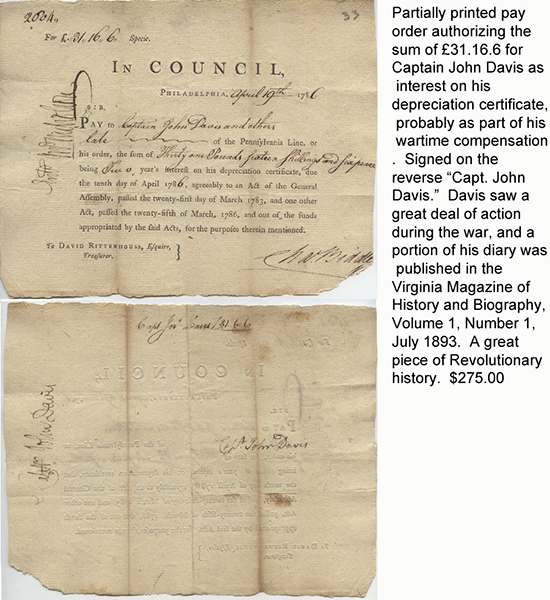 2604.
33
For £.31,,16,,6, Specie.
IN COUNCIL,
PHILADELPHIA, April 19th 1786
SIR,
PAY to Captain John Davis and others
late of the Pennsylvania Line, or
his order, the sum of Thirty one Pounds sixteen shillings and sixpence
being Two, year's interest on his depreciation certificate, due
the tenth day of April 1786, agreeably to an Act of the General
Assembly, passed the twenty-first day of March 1783, and one other
Act, passed the twenty-fifth of March, 1786, and out of the funds
appropriated by the said Acts, for the purposes therein mentioned.
To DAVID RITTENHOUSE, Esquire,
Treasurer.
Chas Biddle
Capt Jno. Davis £31.6.6
John Davis
Capt. John Davis
Partially printed pay
order authorizing the
sum of £31.16.6 for
Captain John Davis as
interest on his
depreciation certificate,
probably as part of his
wartime compensation
. Signed on the
reverse “Capt. John
Davis.” Davis saw a
great deal of action
during the war, and a
portion of his diary was
published in the
Virginia Magazine of
History and Biography,
Volume 1, Number 1,
July 1893. A great
piece of Revolutionary
history. $275.00